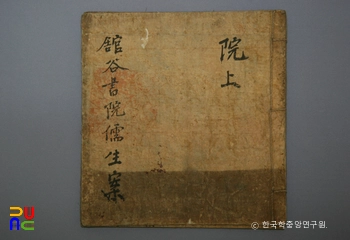 院上
舘谷書院儒生案
© 한국학중앙연구원